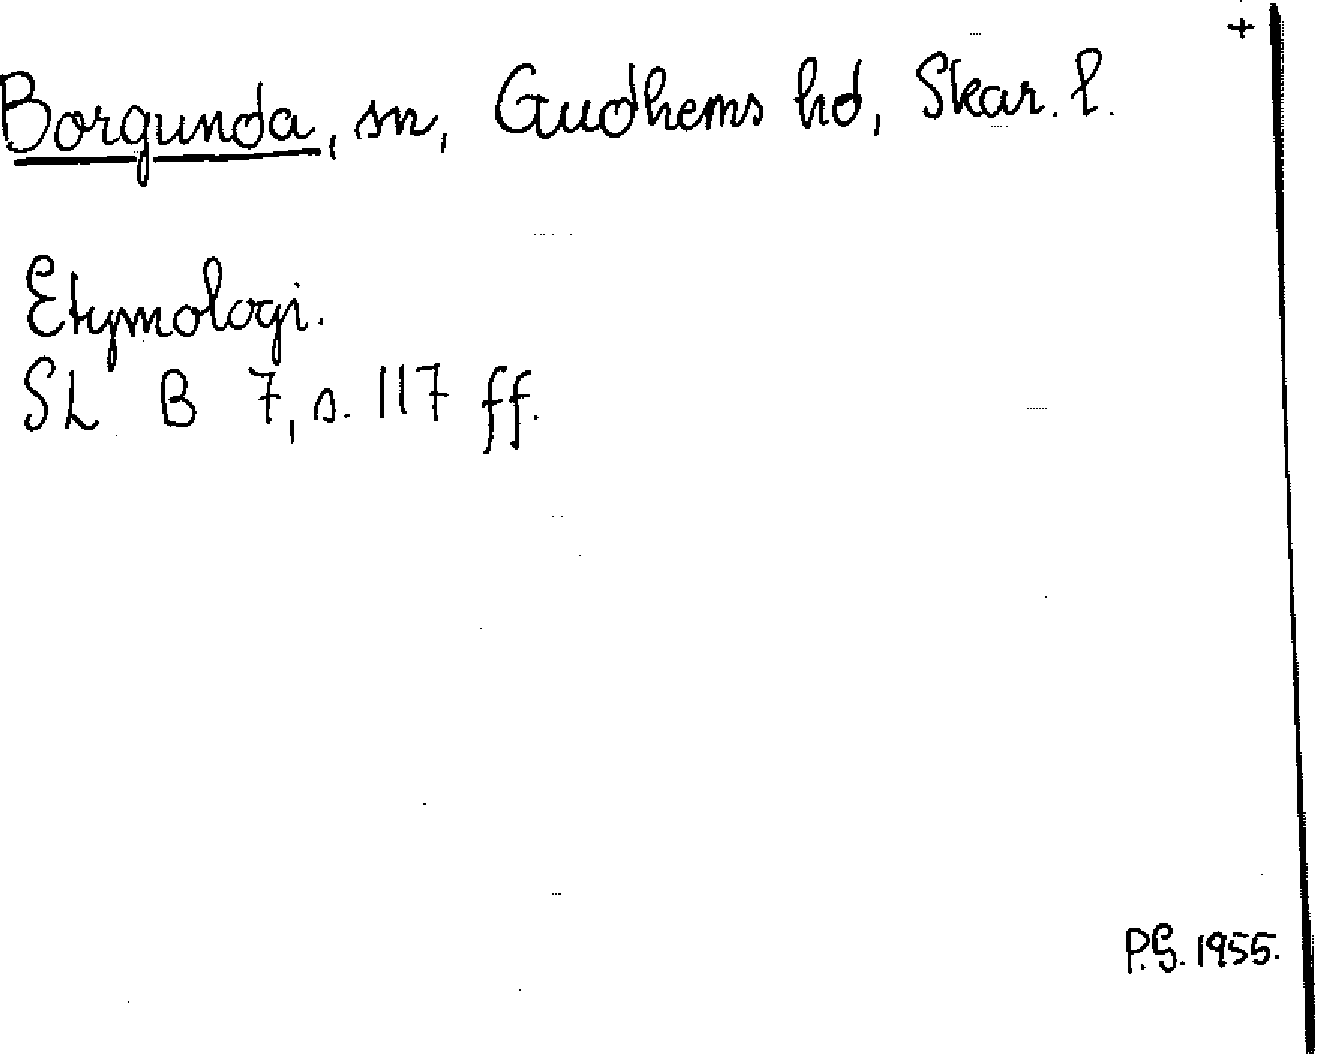 +
Borgunda, sn, Gudhems hd, Skar. l.
Etymologi.
SL B 7, s. 117 ff.
P.G. 1955.